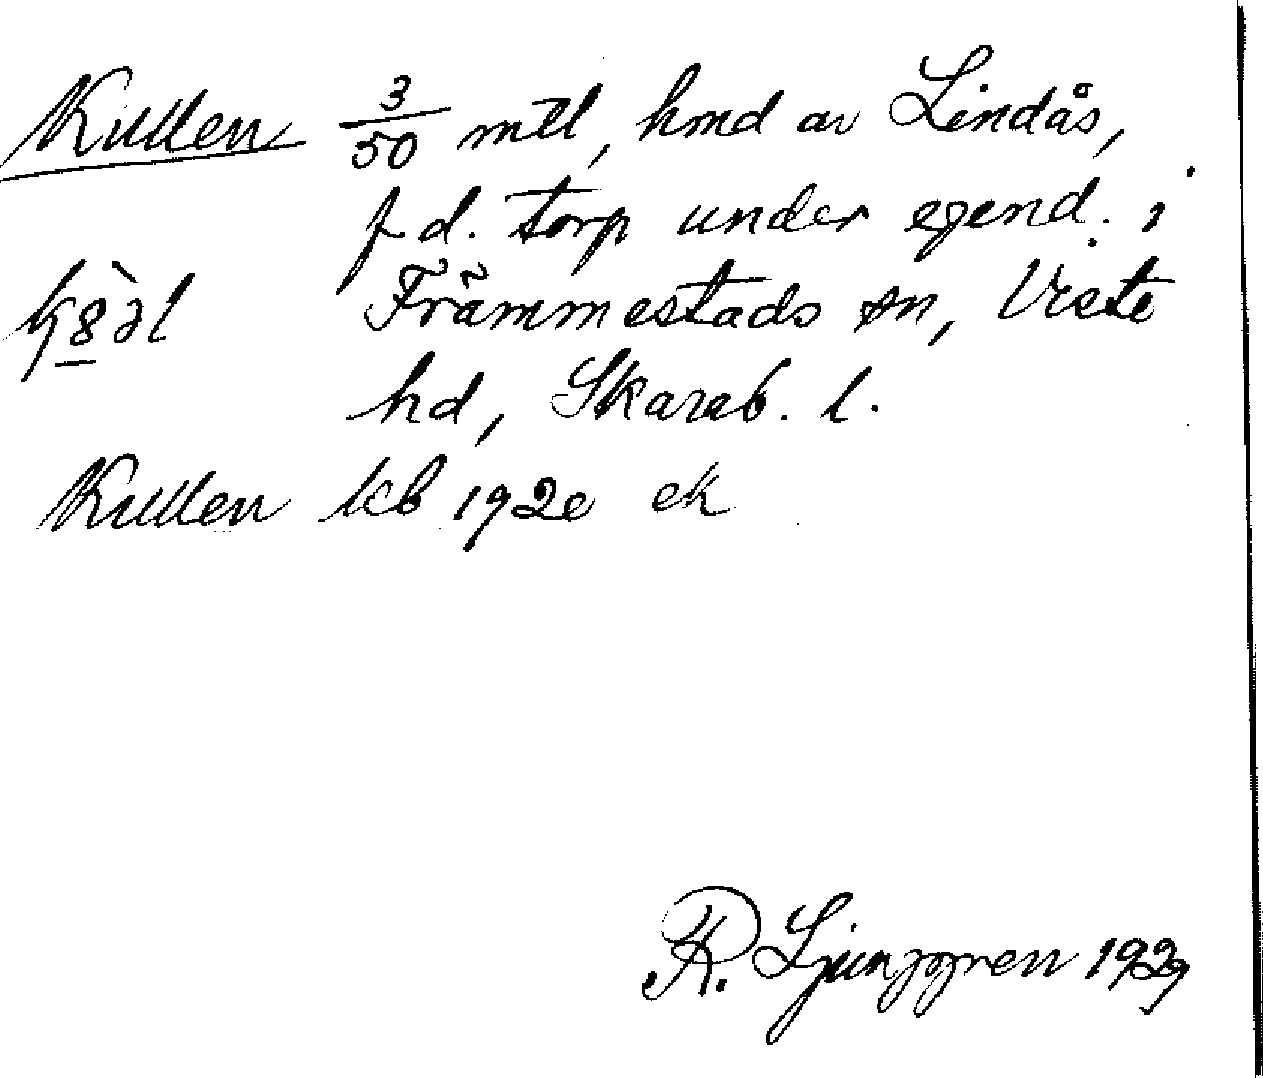 Kullen 3/50 mtl, hmd av Lindås,
f d. torp under egend. i
Främmestads sn, Viste
hd, Skarab. l.
Kullen kb 1920 ek
K. R. Ljunggren 1929